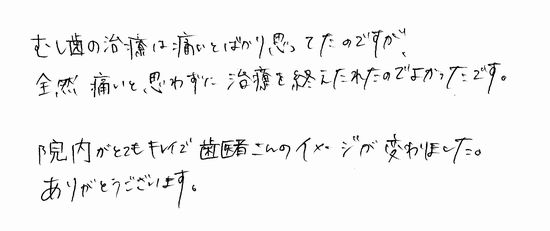 むし歯の治療は痛いとばかり思ってたのですが、
全然痛いと思わずに治療を終えたれたのでよかったです。
院内がとてもキレイで歯医者さんのイメージが変わりました。
ありがとうございます。